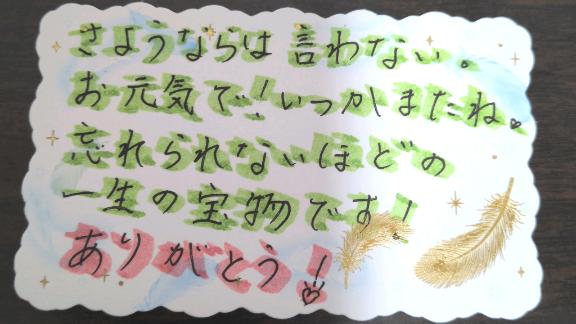 さようならは言わない。
お元気で!いつかまたね。
忘れられないほどの
一生の宝物です!
ありがとう!